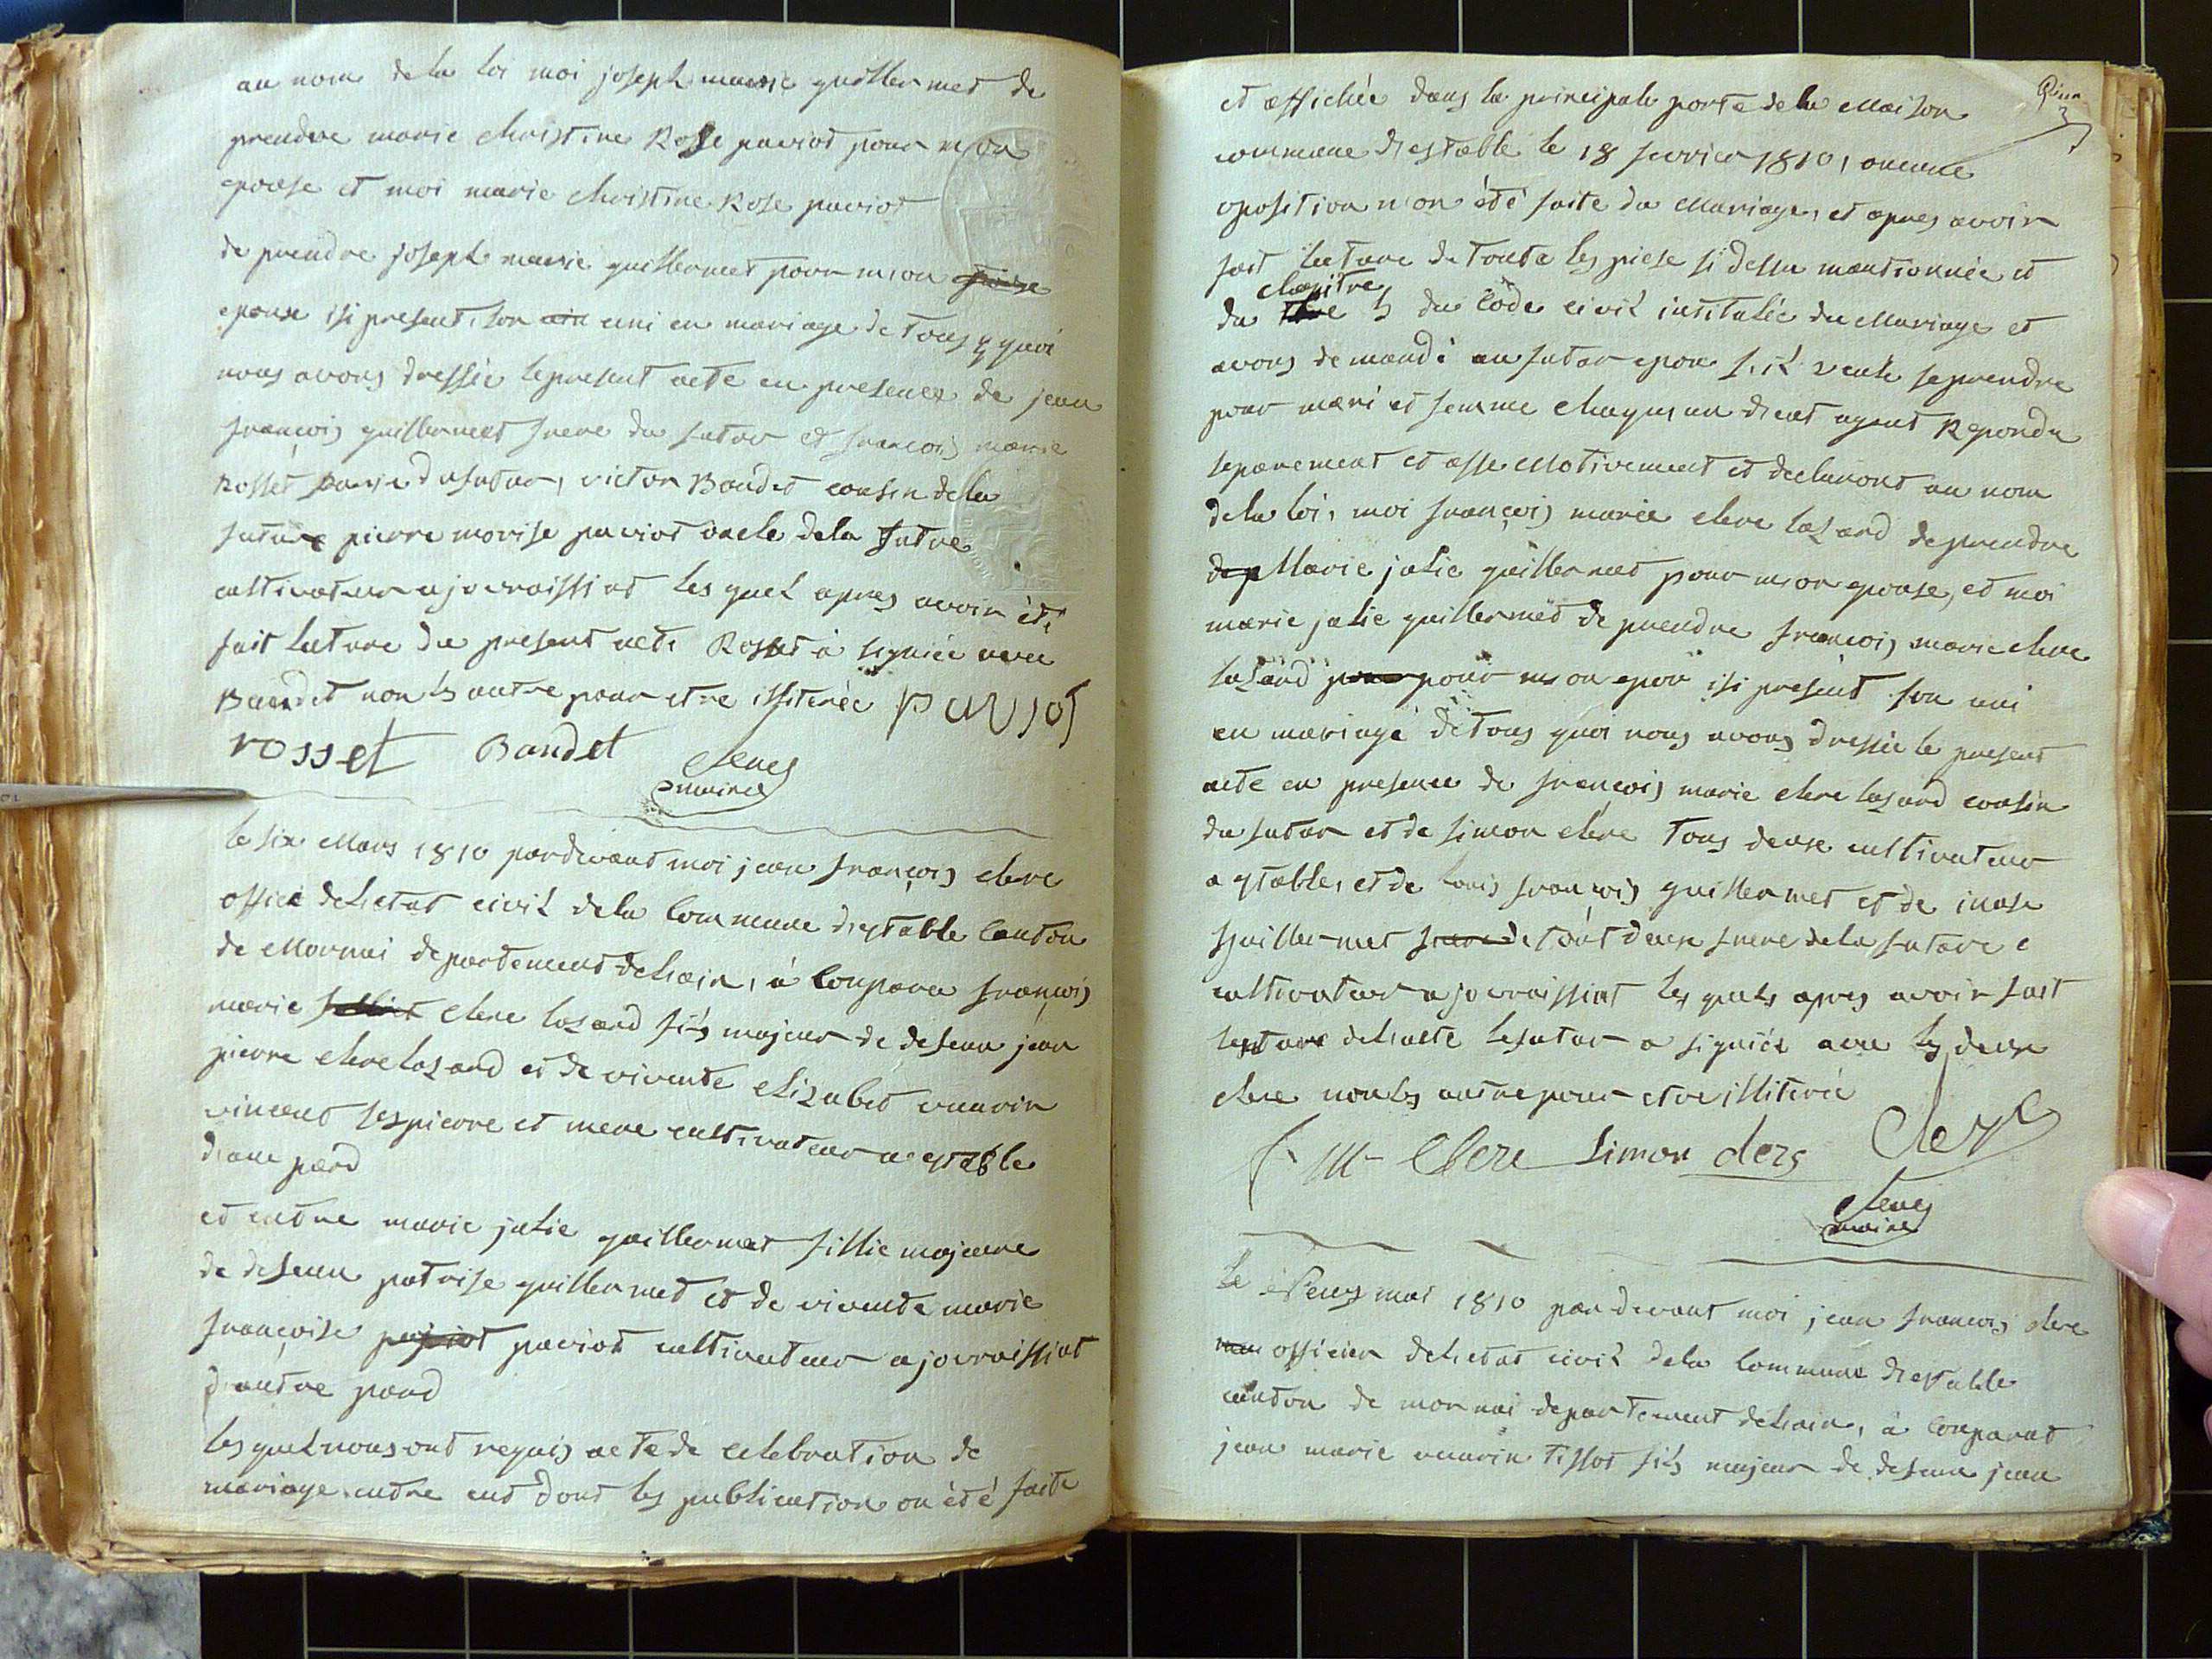 au nom de la loi moi joseph marie guillermet de
prendre marie christine Rose paviot pour mon
epouse et moi marie christine Rose paviot
de prendre joseph marie guillermet pour mon
epoux isi present, son uni en mariage de tous quoi
nous avons dressée le present acte en presence de jean
françois guillermet frere du futur et françois marie
Rosset du futur, victor Baudet cousin de la
future pierre morise paviot oncle de la future
cultivateur a jovraissiat les quel apres avoir été
fait lecture du present acte Rosset à signiée avec
Baudet non les autre pour etre illiterée paviot
rosset Baudet Clerc
maire
le six Mars 1810 pardevant moi jean françois clerc
officié de l'etat civil de la Commune d'estable Canton
de Mornai departement de l'ain, à Comparu françois
marie clerc lazard fils majeur de defeun jean
pierre clerc lazard et de vivente elizabet
vincent ses pierre et mere cultivateur a estable
d'une pard
et entre marie julie guillermet fillie majeure
de defeun patrise guillermet et de vivente marie
françoise paviot cultivateur a jovraissiat
d'autre pard
les quel nous ont requis acte de celebration de
mariage entre eux dont les publication on été faite
et affichée dans la principale porte de la Maison
commune d'estable le 18 fevrier 1810, aucune
oposition n'on été faite du Mariage, et apres avoir
fait lecture de toute les piese si dessu mantionnée et
chapitre
du 5 du Code civil intitulée du Mariage et
avons demandé au futur epou s'il veule se prendre
pour mari et femme chaqus un d'eux ayant Repondu
separement et affe Motivement et declaront au nom
de la loi, moi françois marie clerc lazard de prendre
Marie julie guillermet pour mon epouse, et moi
marie julie guillermet de prendre françois marie clerc
lazard pour mon epou isi present son uni
en mariage de tous quoi nous avons dressée le present
acte en presence de françois marie clerc lazard cousin
du futur et de simon clerc tous deux cultivateur
a estable, et de louis françois guillermet et de
guillermet tout deux frere de la future
cultivateur a jovraissiat les quels apres avoir fait
lecture de l'acte le futur a signiée avec les deux
clerc non les autre pour etre illiterée
f. m. Clerc Simon clerc Clerc
Clerc
maire
Le mai 1810 pardevant moi jean françois clerc
officier de l'etat civil de la Commune d'estable
canton de mornai departement de l'ain, à Comparut
jean marie tissot fils majeur de defeun jean